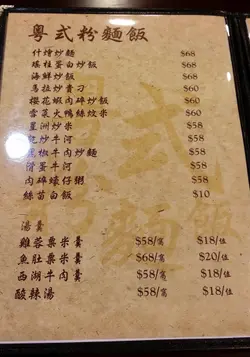 粵式粉麵飯
什燴炒麵 $68
瑤柱蛋白炒飯 $68
海鮮炒飯 $68
烏拉炒賣刀 $60
櫻花蝦肉碎炒飯 $60
雪菜火鴨絲炆米 $60
星洲炒米 $58
乾炒牛河 $58
豉椒牛肉炒麵 $58
滑蛋牛河 $58
肉碎蠔仔粥 $58
絲苗白飯 $10
湯羹
雞蓉粟米羹 $58/窩 $18/位
魚肚粟米羹 $68/窩 $20/位
西湖牛肉羹 $58/窩 $18/位
酸辣湯 $58/窩 $18/位